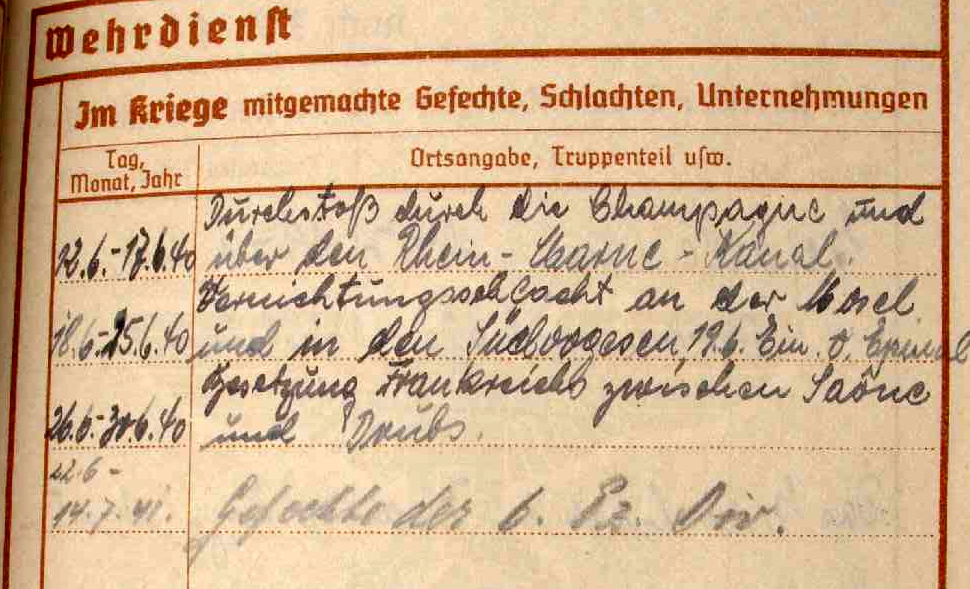 Wehrdienst
Im Kriege mitgemachte Gefechte, Schlachten, Unternehmungen
Tag, Monat, Jahr
Ortsangabe, Truppenteil usw.
Durchstoß durch die Champagne und
12.6.-17.6.40 über den Rhein-Marne-Kanal.
Vernichtungsschlacht an der Mosel
18.6.-25.6.40 und in den Südvogesen, 19.6. Ein. v. Epinal
Besetzung Frankreichs zwischen Saône
26.6.-30.6.40 und Doubs.
22.6-
14.7.41. Gefechte der 6. Pz. Div.